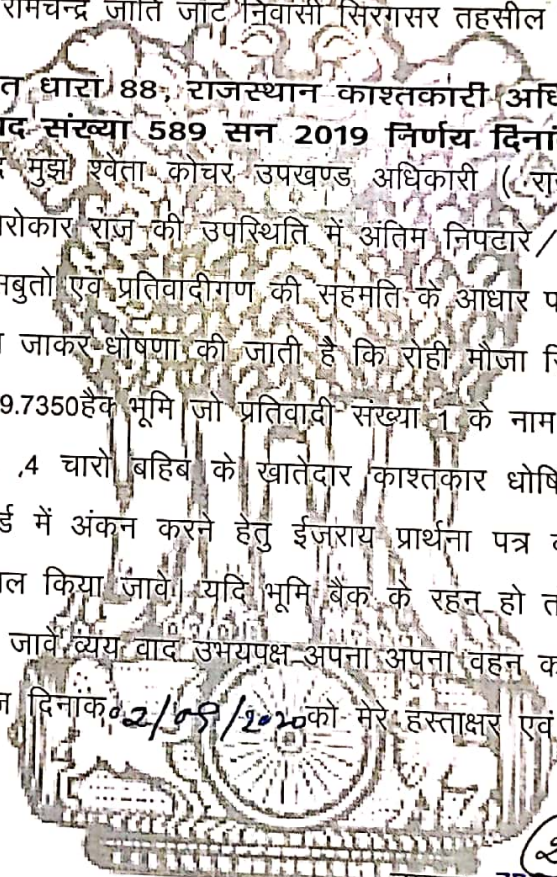 रामचन्द्र जाति जाट निवासी सिरंगसर तहसील
त धारा 88, राजस्थान काश्तकारी अधि
ाद संख्या 589 सन 2019 निर्णय दिना
मुझ श्वेता कोचर उपखण्ड अधिकारी ( रा
रोकार राज की उपस्थिति में अंतिम निपटारे /
बुतो एवं प्रतिवादीगण की सहमति के आधार प
जाकर धोषणा की जाती है कि रोही मौजा सि
9.7350हैक् भूमि जो प्रतिवादी संख्या 1 के नाम
,4 चारो बहिब के खातेदार काश्तकार धोषि
र्ड में अंकन करने हेतु ईजराय प्रार्थना पत्र
ल किया जावे। यदि भूमि बैंक के रहन हो त
जावे व्यय वाद उभयपक्ष अपना अपना वहन क
दिनांक 02/09/2020 को मेरे हस्ताक्षर एवं